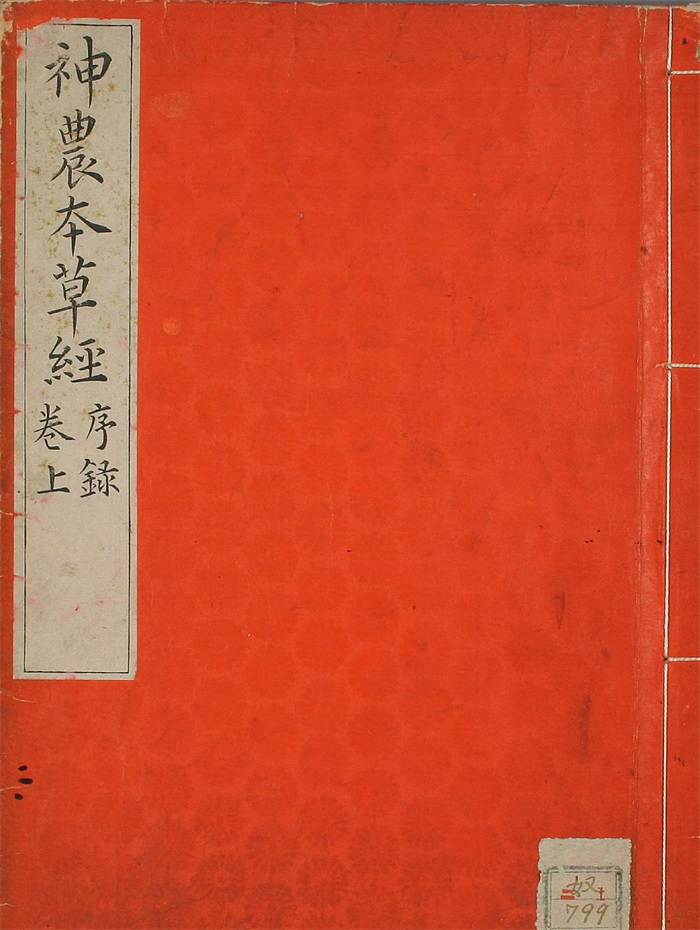 神農本草經
序録
卷上
奴
799